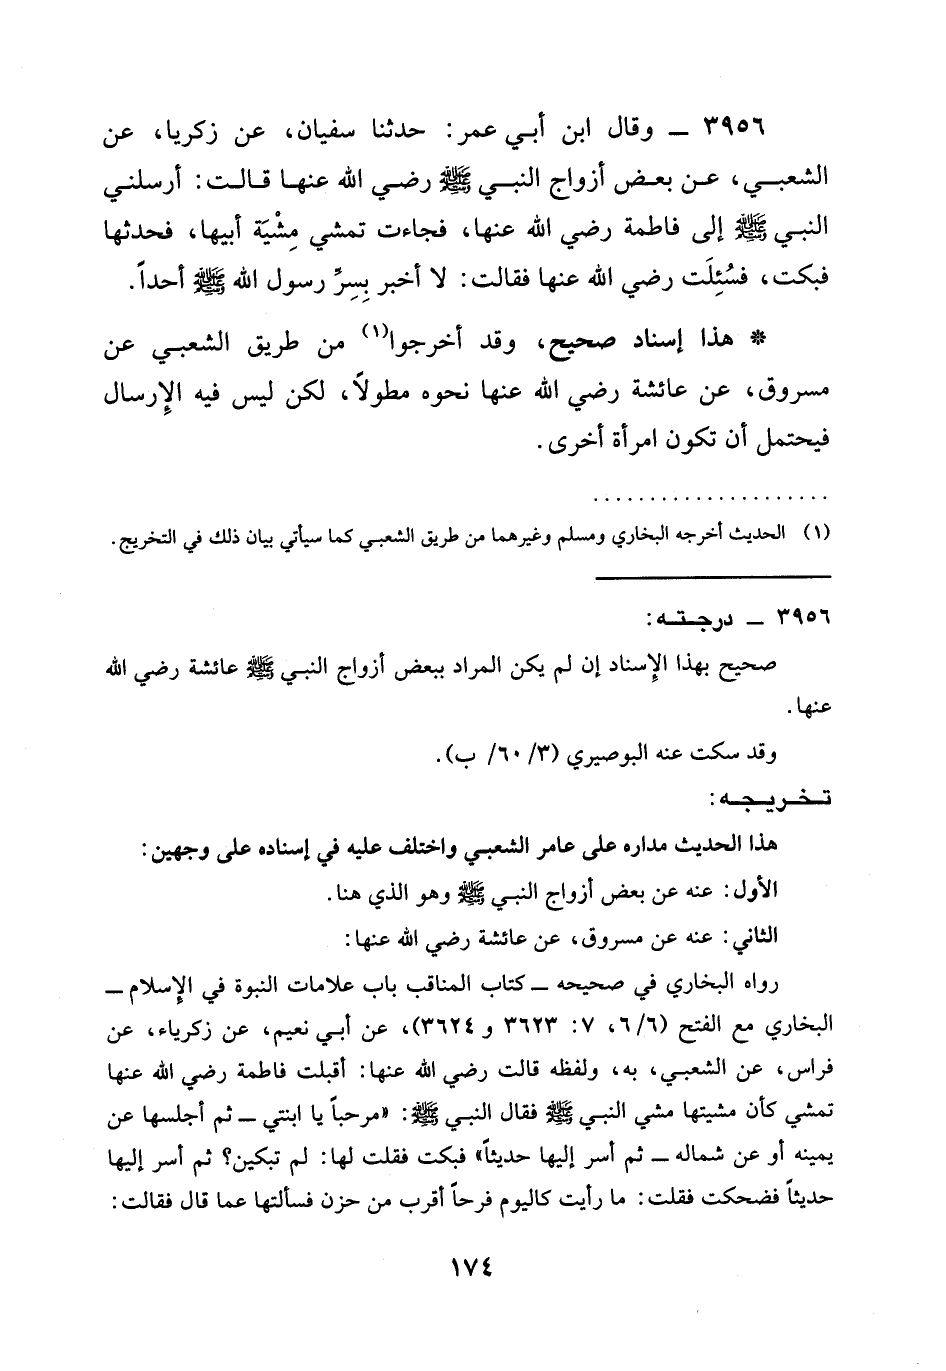 ٣٩٥٦ ــ وقال ابن أبي عمر: حدثنا سفيان، عن زكريا، عن
الشعبي، عن بعض أزواج النبي ﷺ رضي الله عنها قالت: أرسلني
النبي ﷺ إلى فاطمة رضي الله عنها، فجاءت تمشي مِشْيَة أبيها، فحدثها
فبكت، فسُئِلَت رضي الله عنها فقالت: لا أخبر بِسِرِّ رسول الله ﷺ أحداً.
* هذا إسناد صحيح، وقد أخرجوا(١) من طريق الشعبي عن
مسروق، عن عائشة رضي الله عنها نحوه مطولاً، لكن ليس فيه الإِرسال
فيحتمل أن تكون امرأة أخرى.
.....................
(١) الحديث أخرجه البخاري ومسلم وغيرهما من طريق الشعبي كما سيأتي بيان ذلك في التخريج.
٣٩٥٦ ــ درجته:
صحيح بهذا الإِسناد إن لم يكن المراد ببعض أزواج النبي ﷺ عائشة رضي الله
عنها.
وقد سكت عنه البوصيري (٣/ ٦٠/ ب).
تخريجه:
هذا الحديث مداره على عامر الشعبي واختلف عليه في إسناده على وجهين:
الأول: عنه عن بعض أزواج النبي ﷺ وهو الذي هنا.
الثاني: عنه عن مسروق، عن عائشة رضي الله عنها:
رواه البخاري في صحيحه ــ كتاب المناقب باب علامات النبوة في الإِسلام ــ
البخاري مع الفتح (٦/٦، ٧: ٣٦٢٣ و ٣٦٢٤)، عن أبي نعيم، عن زكرياء، عن
فراس، عن الشعبي، به، ولفظه قالت رضي الله عنها: أقبلت فاطمة رضي الله عنها
تمشي كأن مشيتها مشي النبي ﷺ فقال النبي ﷺ: «مرحباً يا ابنتي ــ ثم أجلسها عن
يمينه أو عن شماله ــ ثم أسر إليها حديثاً» فبكت فقلت لها: لم تبكين؟ ثم أسر إليها
حديثاً فضحكت فقلت: ما رأيت كاليوم فرحاً أقرب من حزن فسألتها عما قال فقالت:
١٧٤